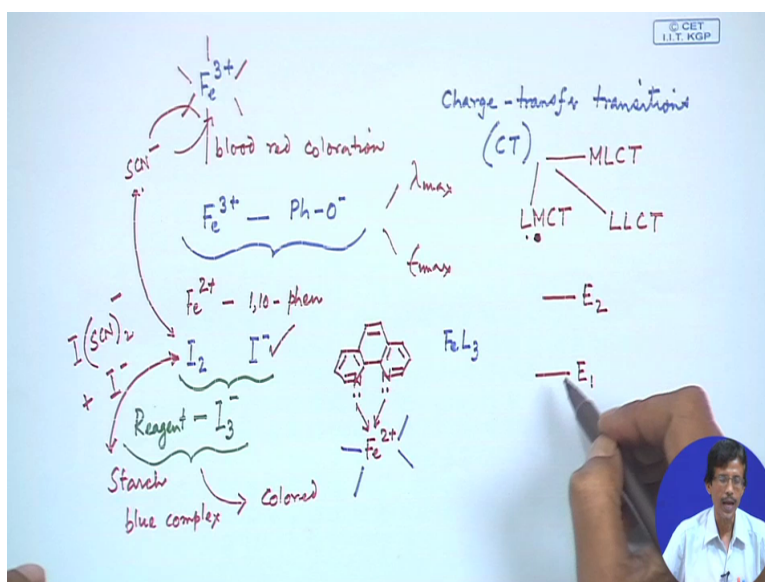 © CET
I.I.T. KGP
Fe³⁺
SCN⁻
blood red coloration
Fe³⁺ — Ph-O⁻
λmax
εmax
Fe²⁺ - 1,10-phen
I(SCN)₂⁻
+ I⁻
I₂ I⁻
Reagent - I₃⁻
Starch
blue complex
colored
N N
Fe²⁺
FeL₃
Charge-transfer transitions
(CT)
MLCT
LMCT
LLCT
E₂
E₁